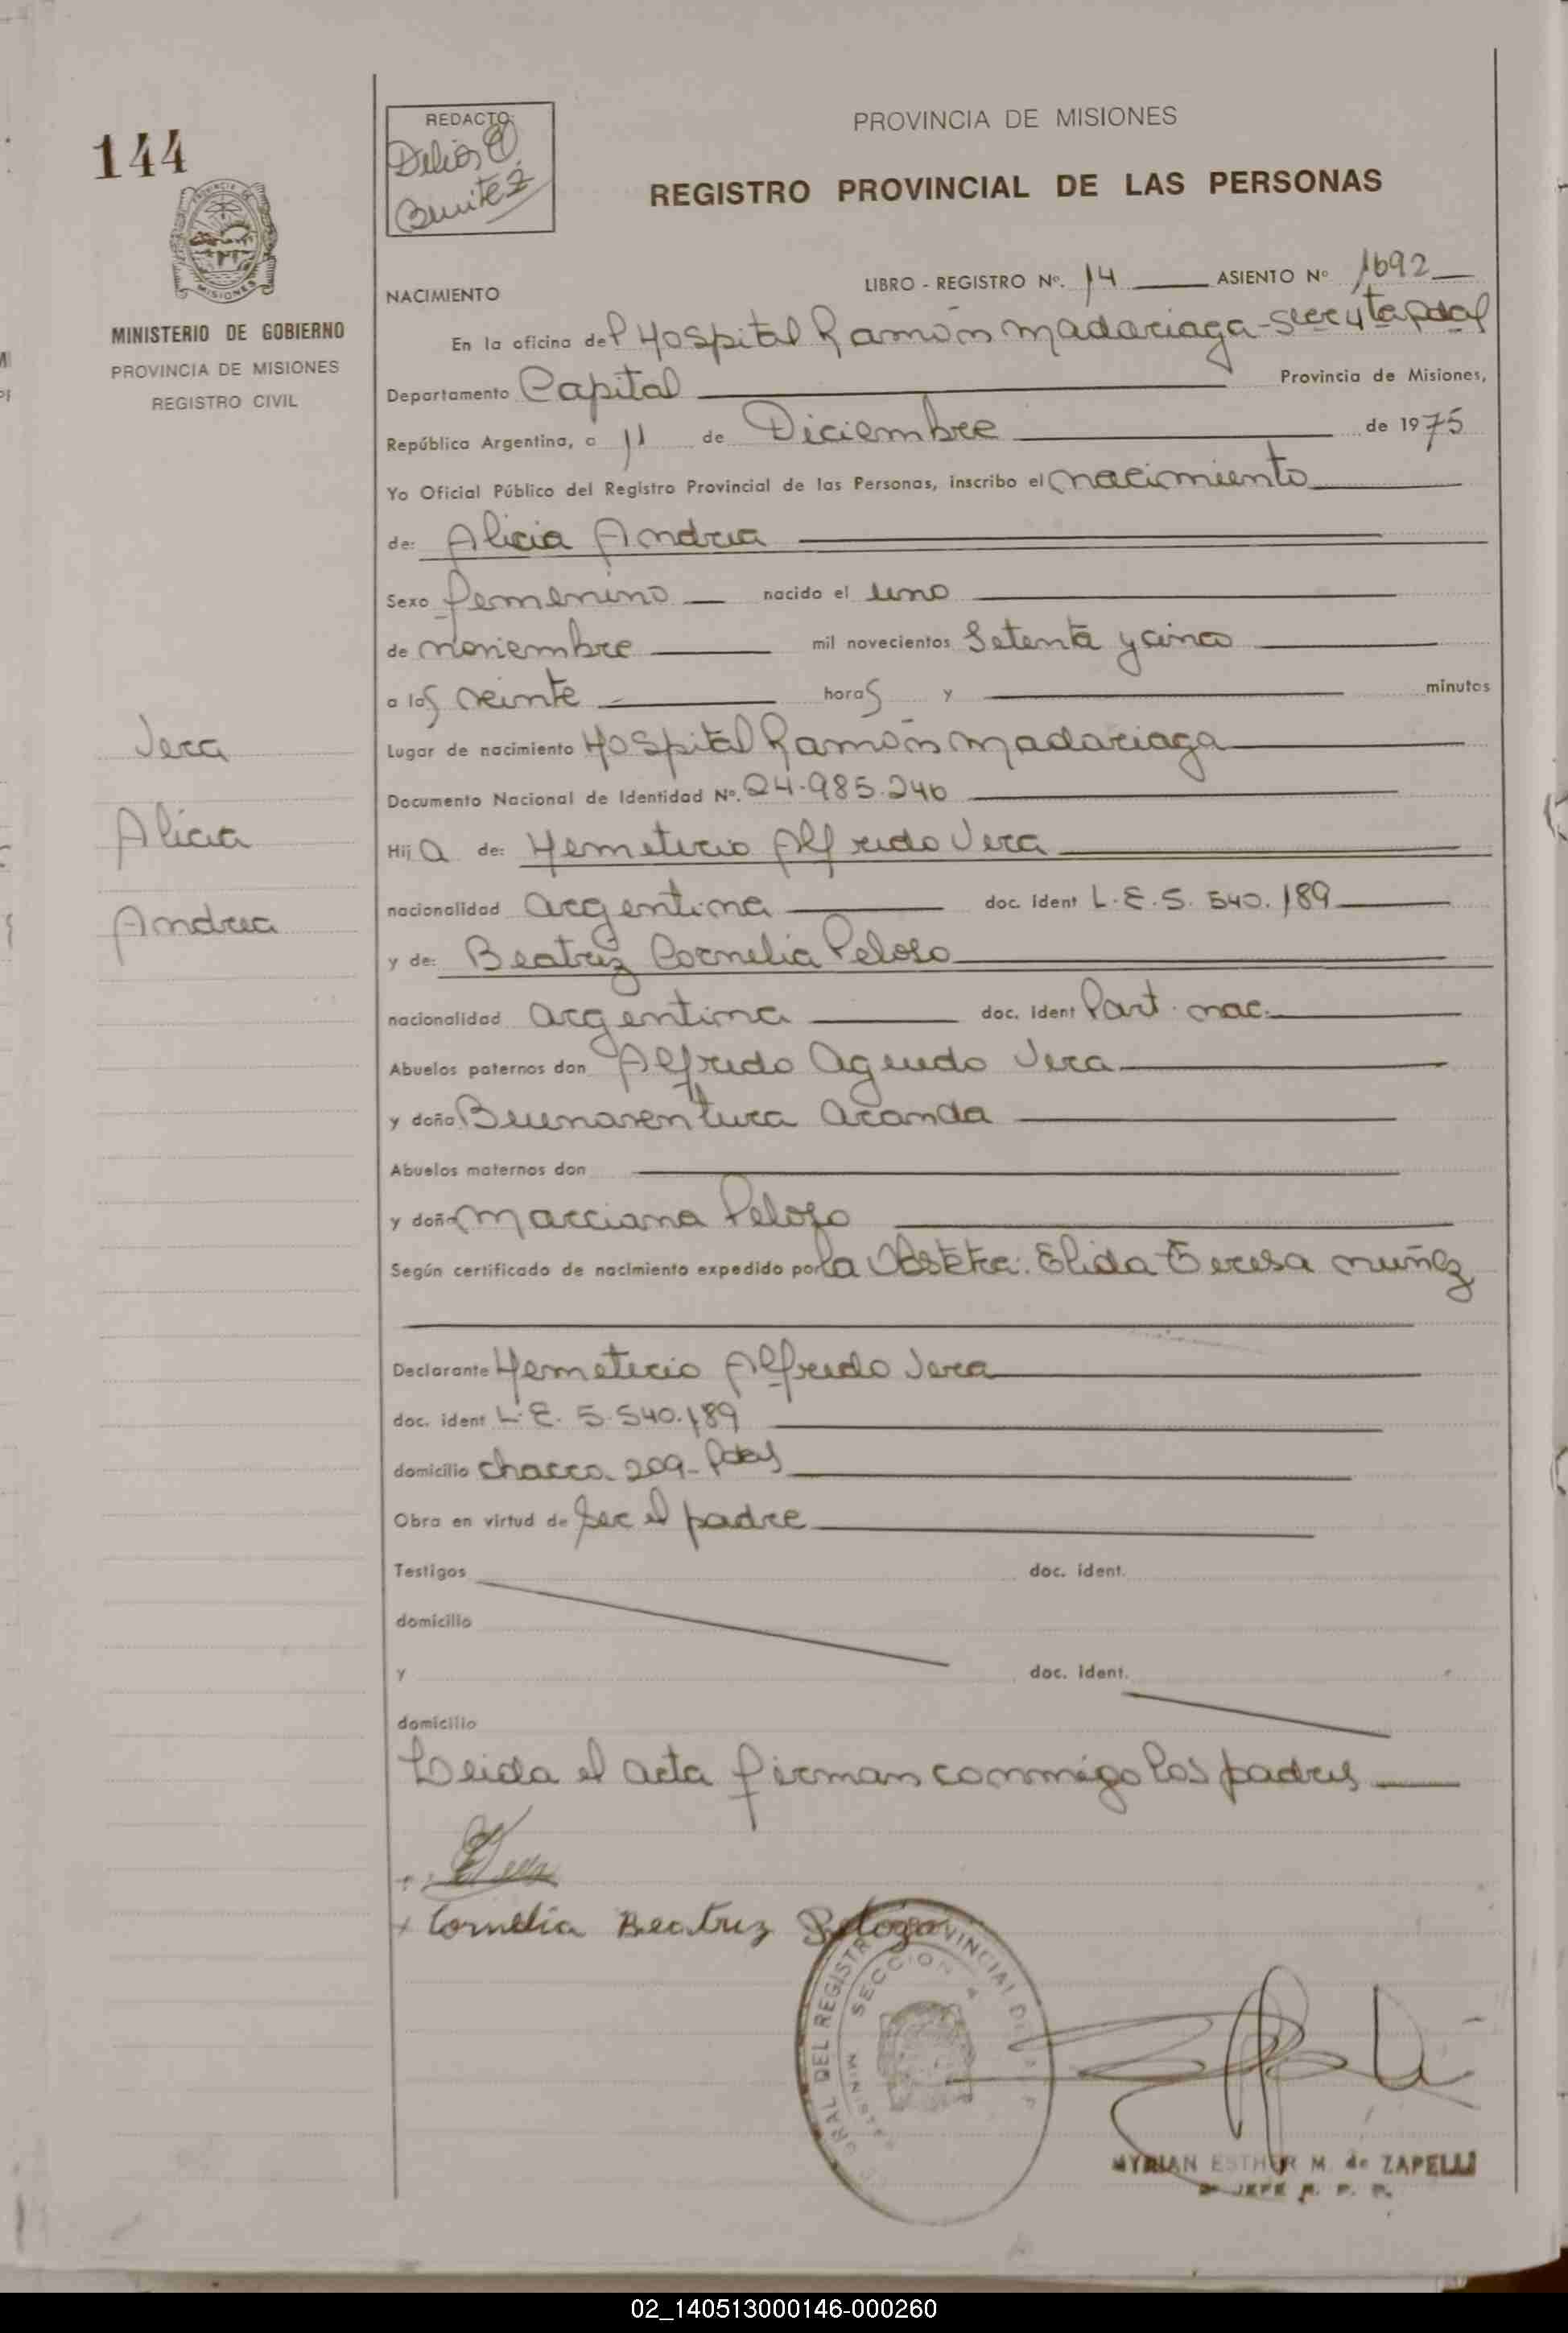 144
REDACTO:
Benitez
PROVINCIA DE MISIONES
REGISTRO PROVINCIAL DE LAS PERSONAS
MISIONES
MINISTERIO DE GOBIERNO
PROVINCIA DE MISIONES
REGISTRO CIVIL
NACIMIENTO
LIBRO - REGISTRO Nº. 14 ASIENTO Nº 1692
En la oficina del Hospital Ramón Madariaga -
Departamento Capital Provincia de Misiones,
República Argentina, a 11 de Diciembre de 1975
Yo Oficial Público del Registro Provincial de las Personas, inscribo el nacimiento
de: Alicia Andrea
Sexo femenino nacido el uno
de noviembre mil novecientos setenta y cinco
a las veinte horas y minutos
Lugar de nacimiento Hospital Ramón Madariaga
Documento Nacional de Identidad Nº. 24.985.246
Hija de: Hemeterio Alfredo Vera
nacionalidad argentina doc. ident L.E. 5.540.189
y de: Beatriz Cornelia Peloso
nacionalidad argentina doc. ident Part. nac.
Abuelos paternos don Alfredo Agudo Vera
y doña Buenaventura Aranda
Abuelos maternos don
y doña Marciana Peloso
Según certificado de nacimiento expedido por la Obstetra: Elida Teresa Nuñez
Declarante Hemeterio Alfredo Vera
doc. ident L.E. 5.540.189
domicilio chacra 209 - Pdas
Obra en virtud de ser el padre
Testigos doc. ident.
domicilio
y doc. ident.
domicilio
Leida el acta firman conmigo los padres
Cornelia Beatriz Pelozo
Vera
Alicia
Andrea
SECCION
MYRIAN ESTHER M. de ZAPELLI
JEFE R. P. P.
02_140513000146-000260